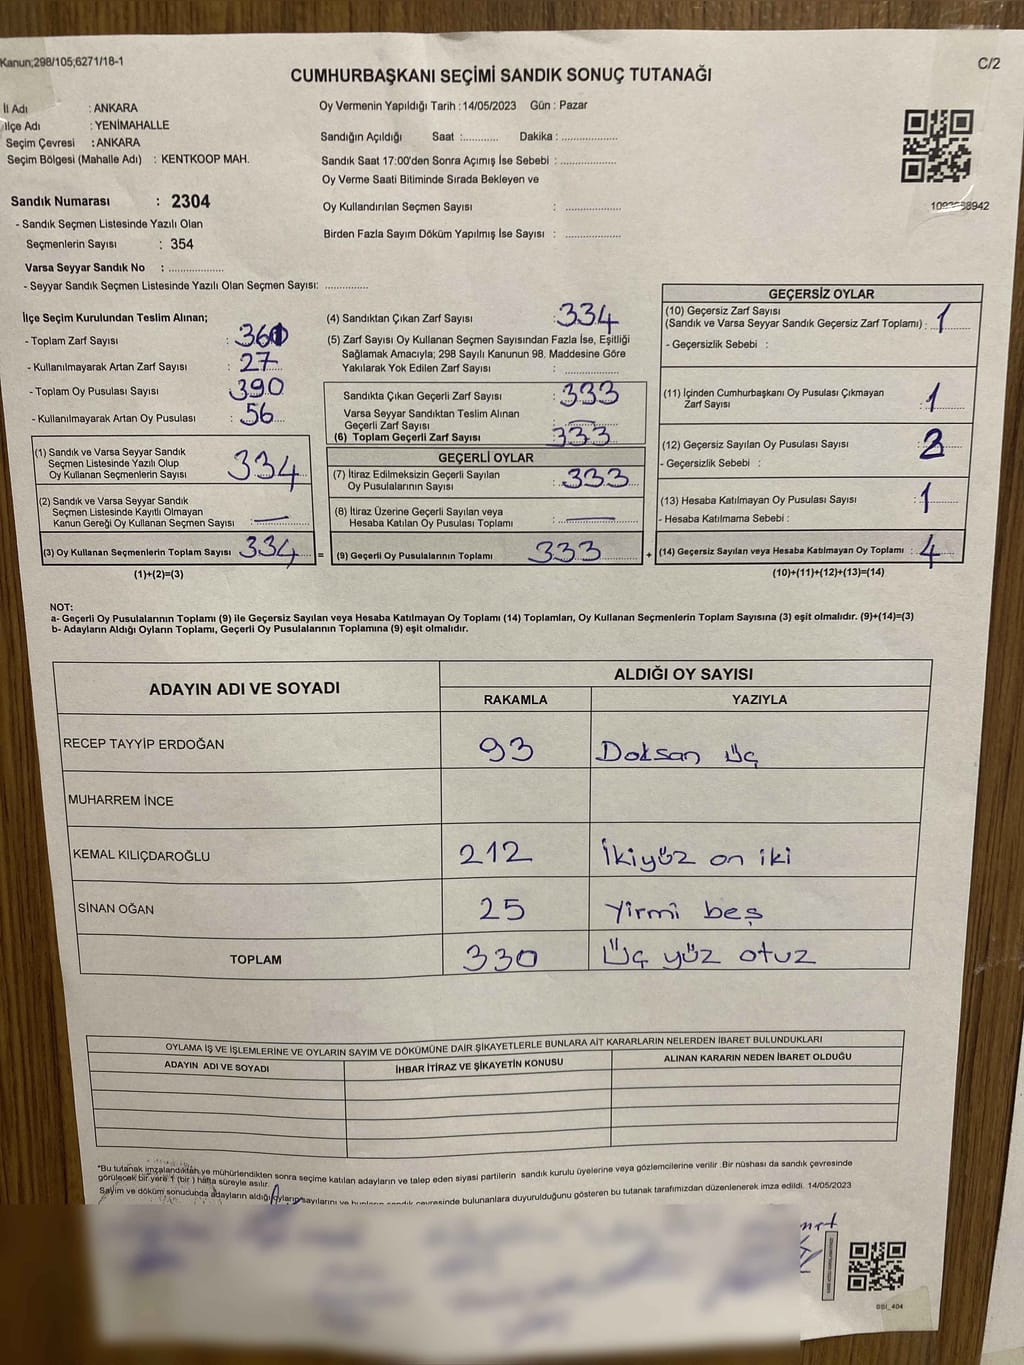 Kanun;298/105;6271/18-1
C/2
CUMHURBAŞKANI SEÇİMİ SANDIK SONUÇ TUTANAĞI
İl Adı : ANKARA
İlçe Adı : YENİMAHALLE
Seçim Çevresi : ANKARA
Seçim Bölgesi (Mahalle Adı) : KENTKOOP MAH.
Sandık Numarası : 2304
- Sandık Seçmen Listesinde Yazılı Olan
Seçmenlerin Sayısı : 354
Varsa Seyyar Sandık No : ....................
- Seyyar Sandık Seçmen Listesinde Yazılı Olan Seçmen Sayısı: ................
Oy Vermenin Yapıldığı Tarih : 14/05/2023 Gün : Pazar
Sandığın Açıldığı Saat :............ Dakika : ....................
Sandık Saat 17:00'den Sonra Açımış İse Sebebi : ....................
Oy Verme Saati Bitiminde Sırada Bekleyen ve
Oy Kullandırılan Seçmen Sayısı : ....................
Birden Fazla Sayım Döküm Yapılmış İse Sayısı : ....................
İlçe Seçim Kurulundan Teslim Alınan;
- Toplam Zarf Sayısı :
- Kullanılmayarak Artan Zarf Sayısı : 27
- Toplam Oy Pusulası Sayısı : 390
- Kullanılmayarak Artan Oy Pusulası : 56
(1) Sandık ve Varsa Seyyar Sandık
Seçmen Listesinde Yazılı Olup
Oy Kullanan Seçmenlerin Sayısı : 334
(2) Sandık ve Varsa Seyyar Sandık
Seçmen Listesinde Kayıtlı Olmayan
Kanun Gereği Oy Kullanan Seçmen Sayısı : —
(3) Oy Kullanan Seçmenlerin Toplam Sayısı : 334 =
(1)+(2)=(3)
(4) Sandıktan Çıkan Zarf Sayısı : 334
(5) Zarf Sayısı Oy Kullanan Seçmen Sayısından Fazla İse, Eşitliği
Sağlamak Amacıyla; 298 Sayılı Kanunun 98. Maddesine Göre
Yakılarak Yok Edilen Zarf Sayısı : ....................
Sandıkta Çıkan Geçerli Zarf Sayısı : 333
Varsa Seyyar Sandıktan Teslim Alınan
Geçerli Zarf Sayısı : —
(6) Toplam Geçerli Zarf Sayısı : 333
GEÇERLİ OYLAR
(7) İtiraz Edilmeksizin Geçerli Sayılan
Oy Pusulalarının Sayısı : 333
(8) İtiraz Üzerine Geçerli Sayılan veya
Hesaba Katılan Oy Pusulası Toplamı : —
(9) Geçerli Oy Pusulalarının Toplamı : 333 +
GEÇERSİZ OYLAR
(10) Geçersiz Zarf Sayısı
(Sandık ve Varsa Seyyar Sandık Geçersiz Zarf Toplamı) : 1
- Geçersizlik Sebebi :
(11) İçinden Cumhurbaşkanı Oy Pusulası Çıkmayan
Zarf Sayısı : 1
(12) Geçersiz Sayılan Oy Pusulası Sayısı :
- Geçersizlik Sebebi :
(13) Hesaba Katılmayan Oy Pusulası Sayısı : 1
- Hesaba Katılmama Sebebi :
(14) Geçersiz Sayılan veya Hesaba Katılmayan Oy Toplamı : 4
(10)+(11)+(12)+(13)=(14)
NOT:
a- Geçerli Oy Pusulalarının Toplamı (9) ile Geçersiz Sayılan veya Hesaba Katılmayan Oy Toplamı (14) Toplamları, Oy Kullanan Seçmenlerin Toplam Sayısına (3) eşit olmalıdır. (9)+(14)=(3)
b- Adayların Aldığı Oyların Toplamı, Geçerli Oy Pusulalarının Toplamına (9) eşit olmalıdır.
ADAYIN ADI VE SOYADI ALDIĞI OY SAYISI
RAKAMLA YAZIYLA
RECEP TAYYİP ERDOĞAN 93 Doksan üç
MUHARREM İNCE
KEMAL KILIÇDAROĞLU 212 İkiyüz on iki
SİNAN OĞAN 25 Yirmi beş
TOPLAM 330 Üç yüz otuz
OYLAMA İŞ VE İŞLEMLERİNE VE OYLARIN SAYIM VE DÖKÜMÜNE DAİR ŞİKAYETLERLE BUNLARA AİT KARARLARIN NELERDEN İBARET BULUNDUKLARI
ADAYIN ADI VE SOYADI İHBAR İTİRAZ VE ŞİKAYETİN KONUSU ALINAN KARARIN NEDEN İBARET OLDUĞU
*Bu tutanak imzalandıktan ve mühürlendikten sonra seçime katılan adayların ve talep eden siyasi partilerin sandık kurulu üyelerine veya gözlemcilerine verilir .Bir nüshası da sandık çevresinde
görülecek bir yere 1 (bir ) hafta süreyle asılır.
Sayım ve döküm sonucunda adayların aldığı oyların sayılarını ve bunların sandık çevresinde bulunanlara duyurulduğunu gösteren bu tutanak tarafımızdan düzenlenerek imza edildi. 14/05/2023
BSI_404